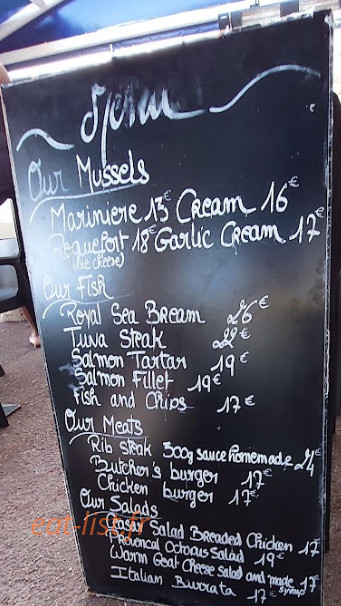 Menu
Our Mussels
Mariniere 13€ Cream 16€
Roquefort 18€ Garlic Cream 17€
(blue cheese)
Our Fish
Royal Sea Bream 26€
Tuna Steak 22€
Salmon Tartar 19€
Salmon Fillet 19€
Fish and Chips 17€
Our Meats
Rib steak 300g sauce homemade 24€
Butcher's burger 17€
Chicken burger 17€
Our Salads
Salad Breaded Chicken 17€
Provencal Octopus Salad 19€
Warm Goat Cheese Salad and made 17€
Italian Burrata 17€
eat-list.fr